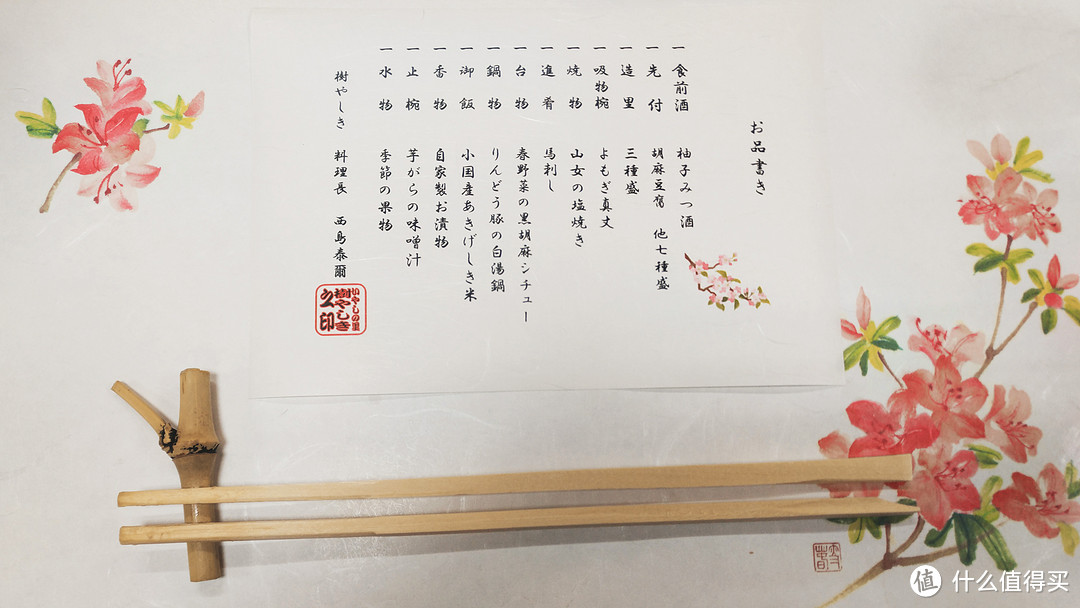 お品書き
一 食前酒 柚子みつ酒
一 先付 胡麻豆腐 他七種盛
一 造里 三種盛
一 吸物椀 よもぎ真丈
一 焼物 山女の塩焼き
一 進肴 馬刺し
一 台物 春野菜の黒胡麻シチュー
一 鍋物 りんどう豚の白湯鍋
一 御飯 小国産あきげしき米
一 香物 自家製お漬物
一 止椀 芋がらの味噌汁
一 水物 季節の果物
樹やしき 料理長 西島泰爾
いやしの里
樹やしき
之印
值 什么值得买